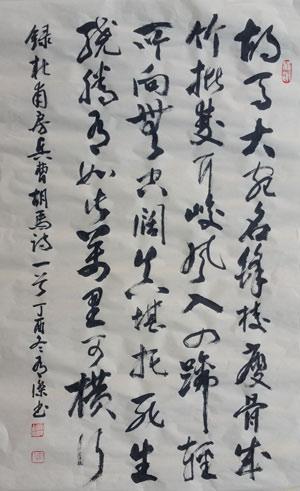 胡马大宛名锋棱瘦骨成
竹批双耳峻风入四蹄轻
所向無空阔真堪托死生
骁腾有如此萬里可横行
録杜甫房兵曹胡馬诗一首丁酉冬书